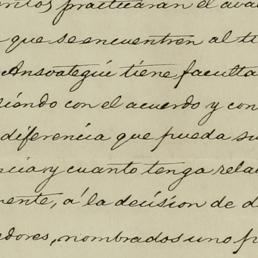 practicarán el ava
que se encuentren al ti
Ansoategui tiene faculta
con el acuerdo y con
diferencia que pueda su
y cuanto tenga rela
á la decision de d
nombrados uno p